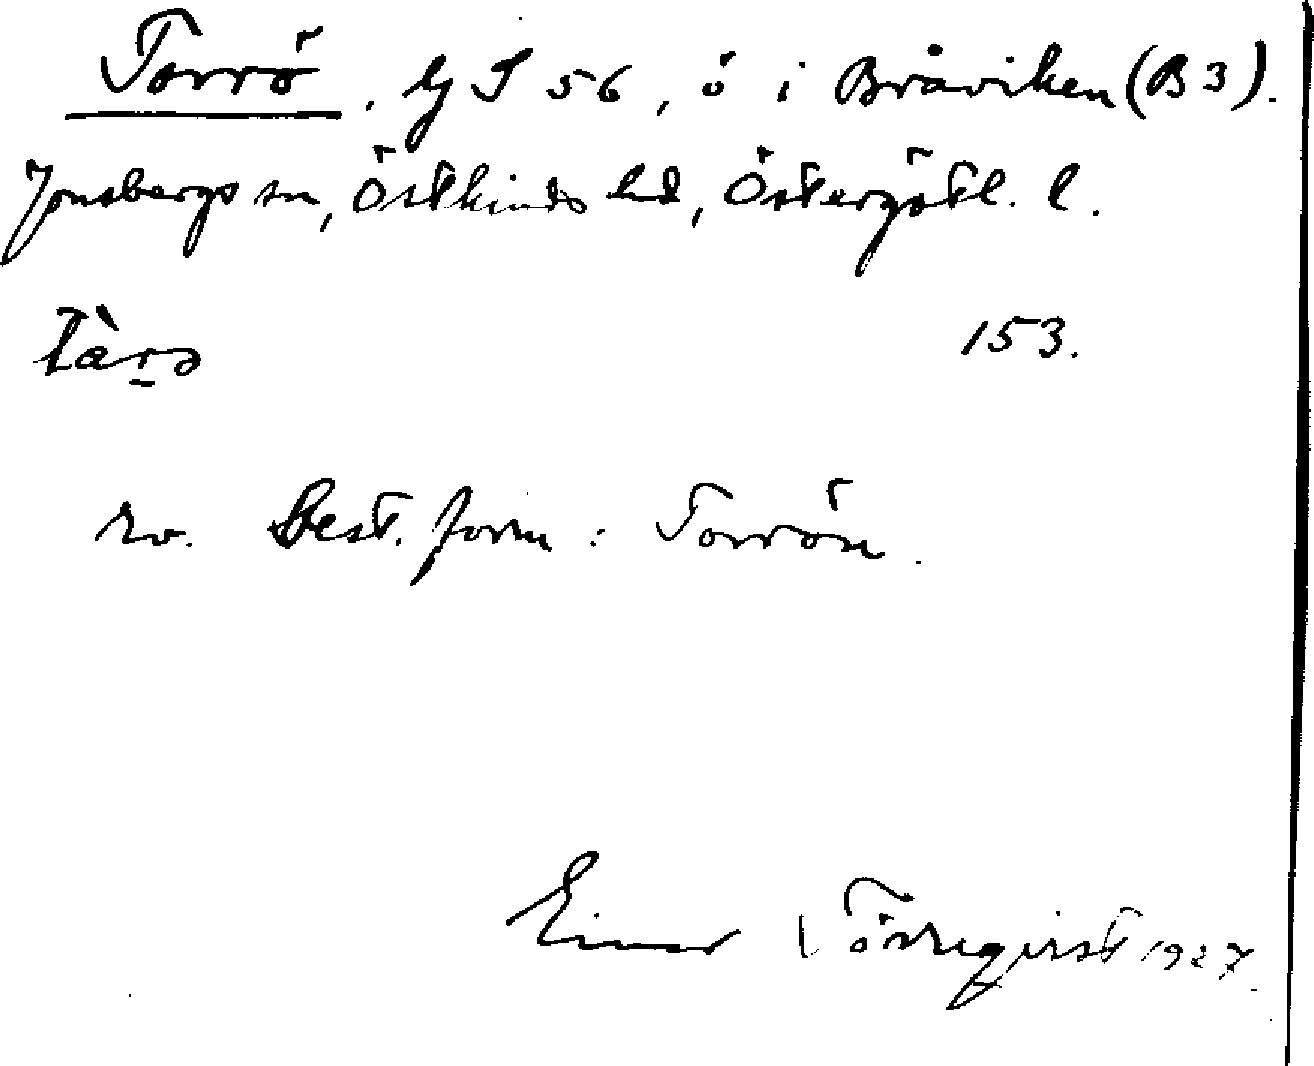 Torrö, GS 56, ö i Bråviken (B 3).
Jonsbergs sn, Östkinds hd, Östergötl. l.
153.
rv. Best. form: Torrön.
Einar Törnqvist 1927